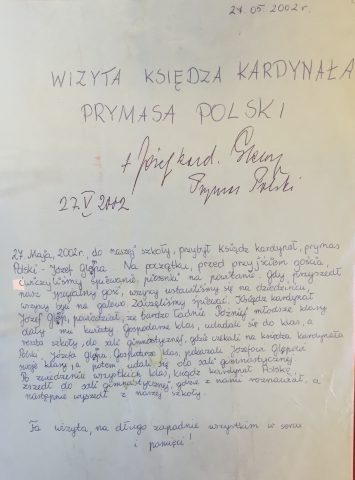 27.05.2002r.
WIZYTA KSIĘDZA KARDYNAŁA
PRYMASA POLSKI
+ Józef kard. Glemp
Prymas Polski
27 V 2002
27 Maja, 2002r, do naszej szkoły, przybył Ksiądz kardynał, prymas
Polski - Józef Glęmp. Na początku, przed przyjściem gościa,
ćwiczyliśmy śpiewanie, piosenki na powitanie. Gdy przyszedł
nasz specjalny gość, wszyscy ustawiliśmy się na dziedzińcu
wszyscy byli na galowo. Zaczęliśmy śpiewać. Ksiądz kardynał
Józef Glęmp, powiedział, że bardzo ładnie. Później młodsze klasy
dały mu kwiaty. Gospodarze klas, udadali się do klas, a
reszta szkoły, do sali gimnastycznej, gdzie czekali na księdza kardynała
Polski, Józefa Glępa. Gospodarze klas, pokazali Józefowi Glępowi
swoje klasy, a potem udali się do sali gimnastycznej.
Po zwiedzeniu wszystkich klas, ksiądz kardynał Polski,
zszedł do sali gimnastycznej, gdzie z nami rozmawiał, a
następnie wyszedł z naszej szkoły.
Ta wizyta, na długo zapadnie wszystkim w sercu
i pamięci!